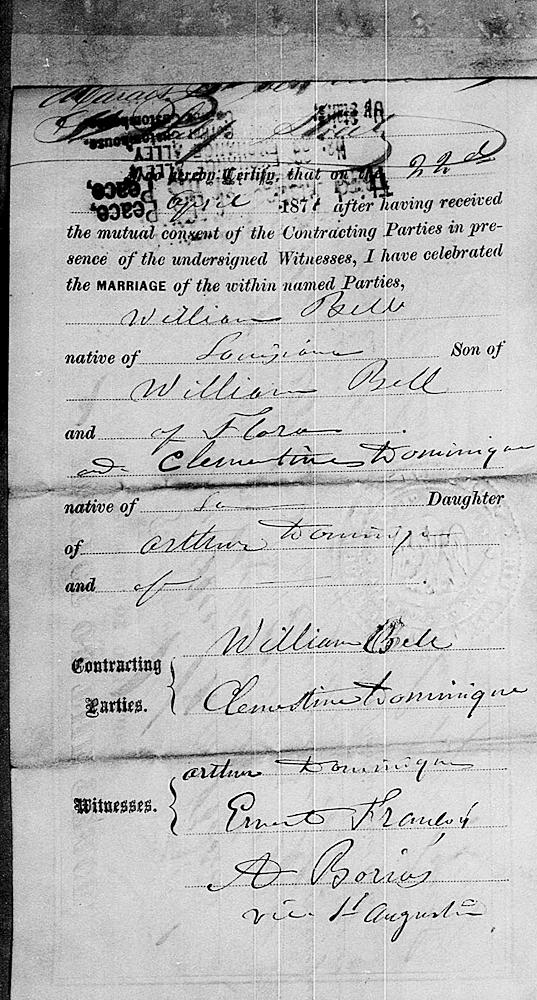 I do hereby Certify, that on the 22d
April 187 after having received
the mutual consent of the Contracting Parties in pre-
sence of the undersigned Witnesses, I have celebrated
the MARRIAGE of the within named Parties,
William Bell
native of Louisiana Son of
William Bell
and of Flora
and Clementine Dominique
native of La Daughter
of Arthur Dominique
and of
William Bell
Contracting
Parties.
Clementine Dominique
Arthur Dominique
Witnesses.
Ernest
A Bories
vice St Augustin